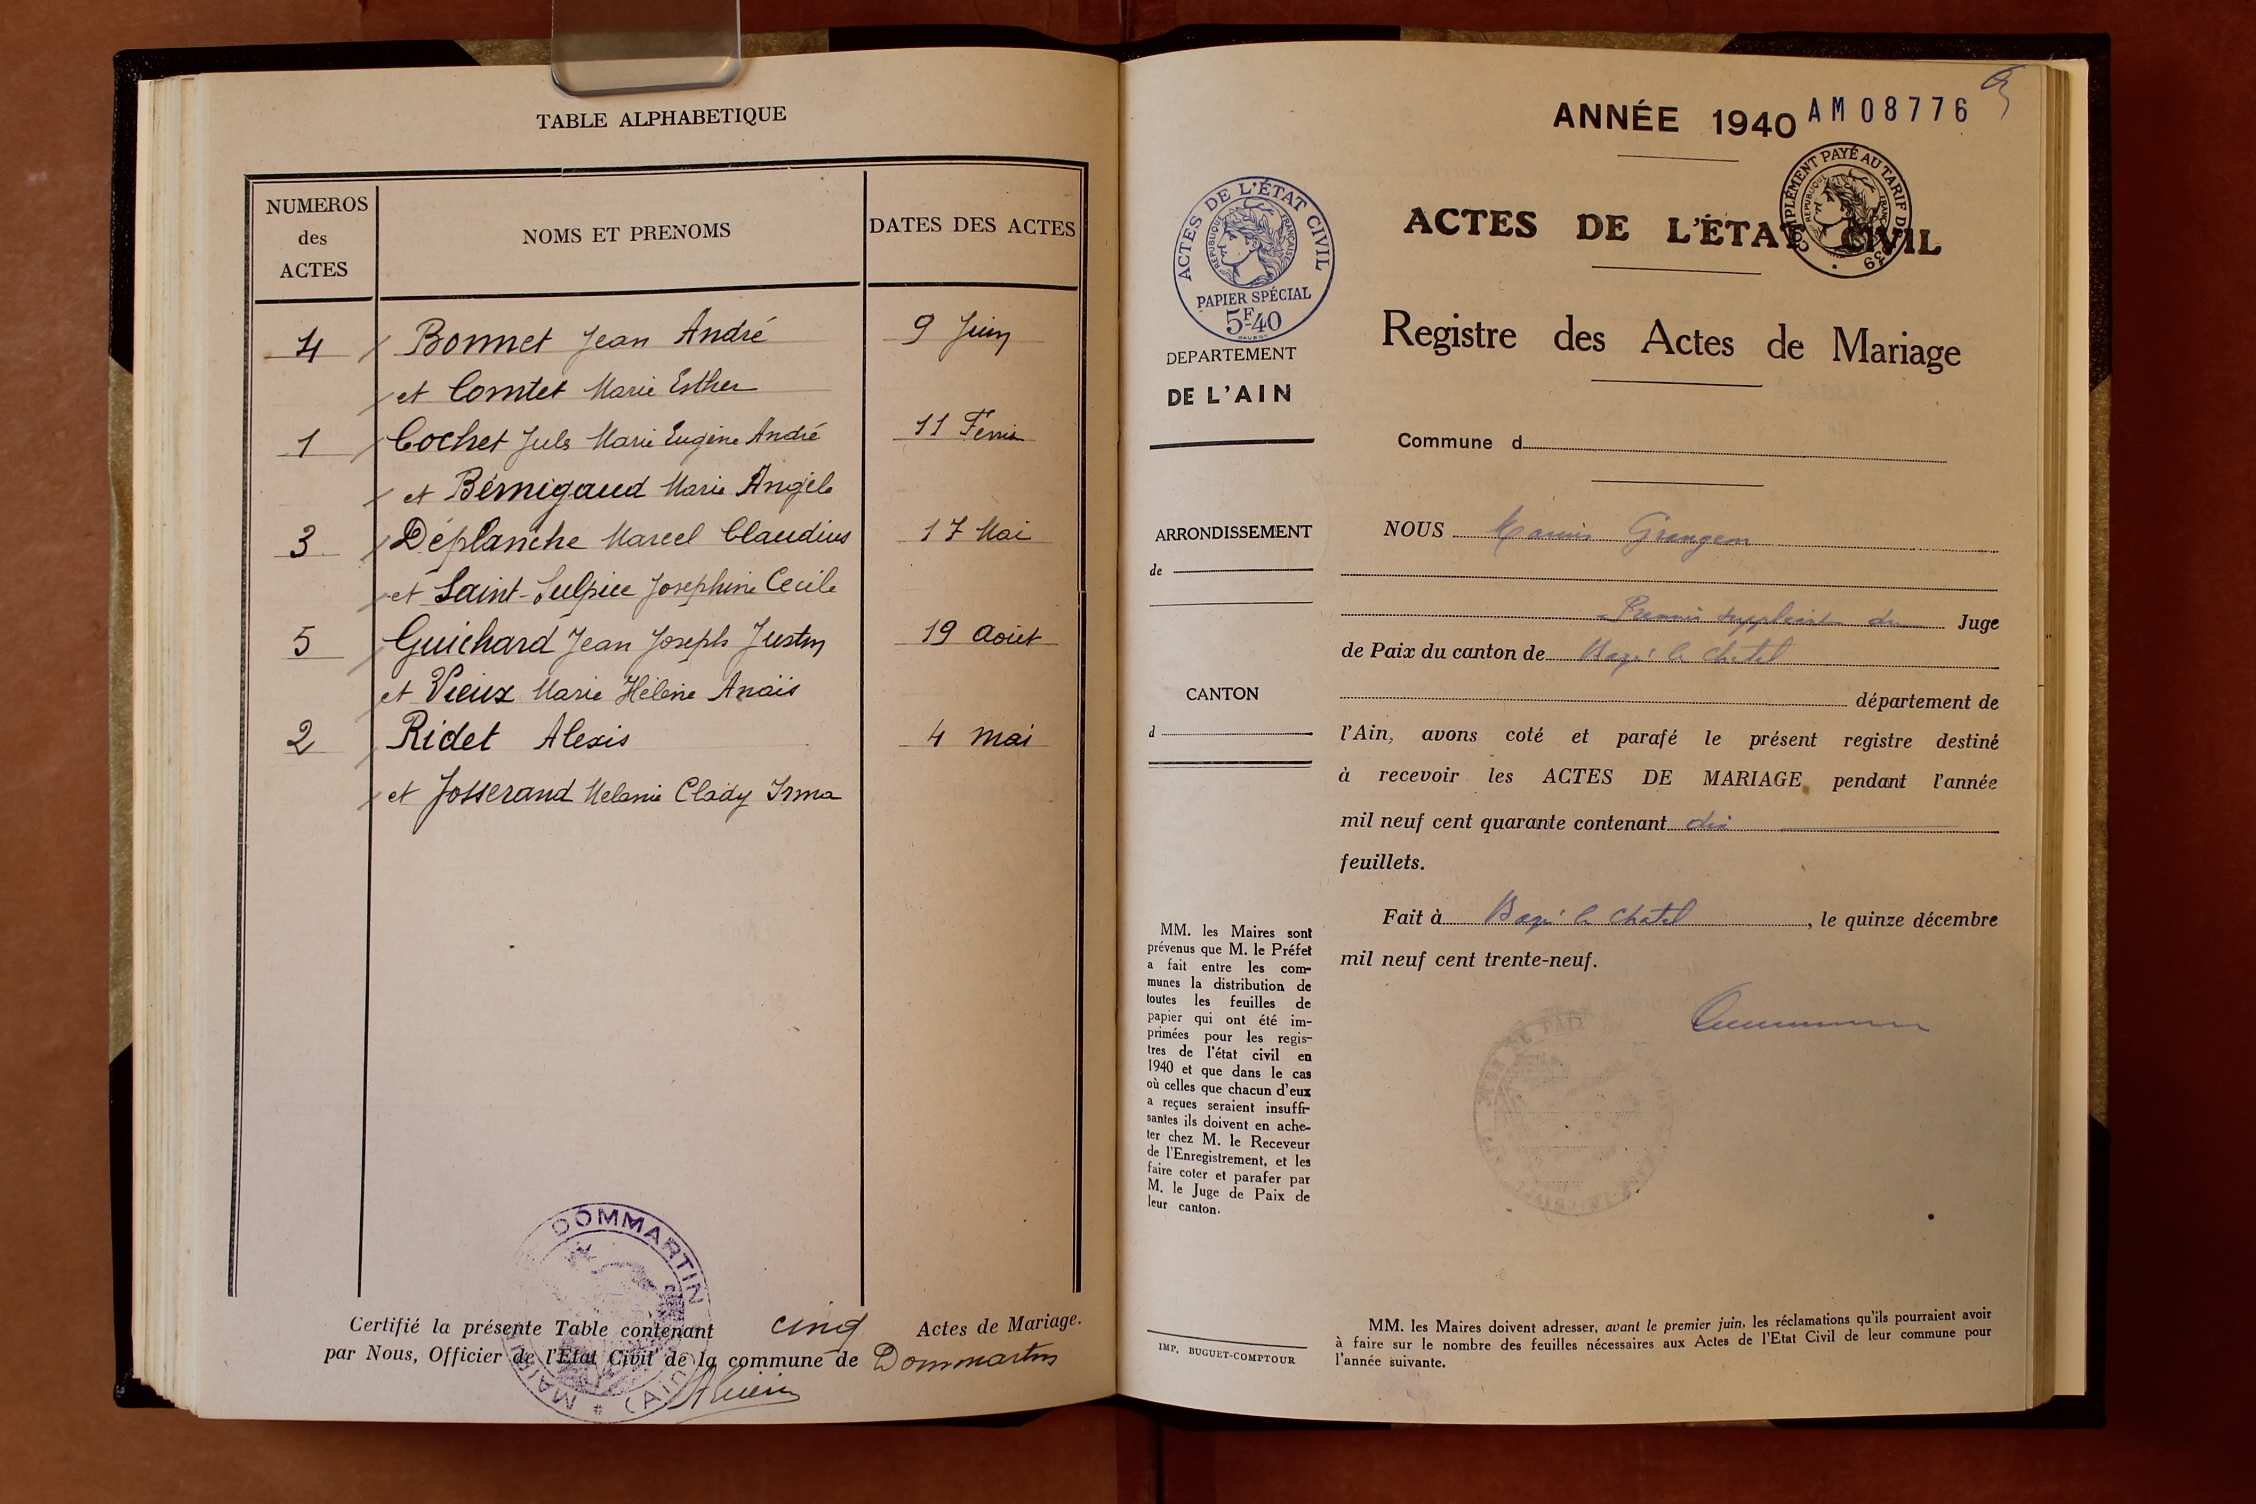 TABLE ALPHABETIQUE
NUMEROS
des
ACTES
NOMS ET PRENOMS
DATES DES ACTES
4 Bonnet Jean André 9 Juin
et Comtet Marie Esther
1 Cochet Jules Marie Eugène André 11
et Bérnigaud Marie Angèle
3 Déplanche Marcel Claudius 17 Mai
et Saint-Sulpice Josephine Cecile
5 Guichard Jean Joseph Justin 19 Août
et Vieux Marie Hélène Anaïs
2 Ridet Alexis 4 Mai
et Josserand Melanie Clady Irma
DOMMARTIN
MAIRIE * (AIN)
Certifié la présente Table contenant cinq Actes de Mariage.
par Nous, Officier de l'Etat Civil de la commune de Dommartin
ANNÉE 1940 AM 08776
COMPLÉMENT PAYÉ AU TARIF DE 1939
REPUBLIQUE FRANÇAISE
ACTES DE L'ÉTAT CIVIL
REPUBLIQUE FRANÇAISE
PAPIER SPÉCIAL
5F.40
ACTES DE L'ÉTAT CIVIL
Registre des Actes de Mariage
DEPARTEMENT
DE L'AIN
Commune d
ARRONDISSEMENT
de
CANTON
d
NOUS
Premier suppléant du Juge
de Paix du canton de Bagé le Châtel
département de
l'Ain, avons coté et parafé le présent registre destiné
à recevoir les ACTES DE MARIAGE pendant l'année
mil neuf cent quarante contenant dix
feuillets.
Fait à Bagé le Châtel, le quinze décembre
mil neuf cent trente-neuf.
MM. les Maires sont
prévenus que M. le Préfet
a fait entre les com-
munes la distribution de
toutes les feuilles de
papier qui ont été im-
primées pour les regis-
tres de l'état civil en
1940 et que dans le cas
où celles que chacun d'eux
a reçues seraient insuffi-
santes ils doivent en ache-
ter chez M. le Receveur
de l'Enregistrement, et les
faire coter et parafer par
M. le Juge de Paix de
leur canton.
IMP. BUGUET-COMPTOUR
MM. les Maires doivent adresser, avant le premier juin, les réclamations qu'ils pourraient avoir
à faire sur le nombre des feuilles nécessaires aux Actes de l'Etat Civil de leur commune pour
l'année suivante.